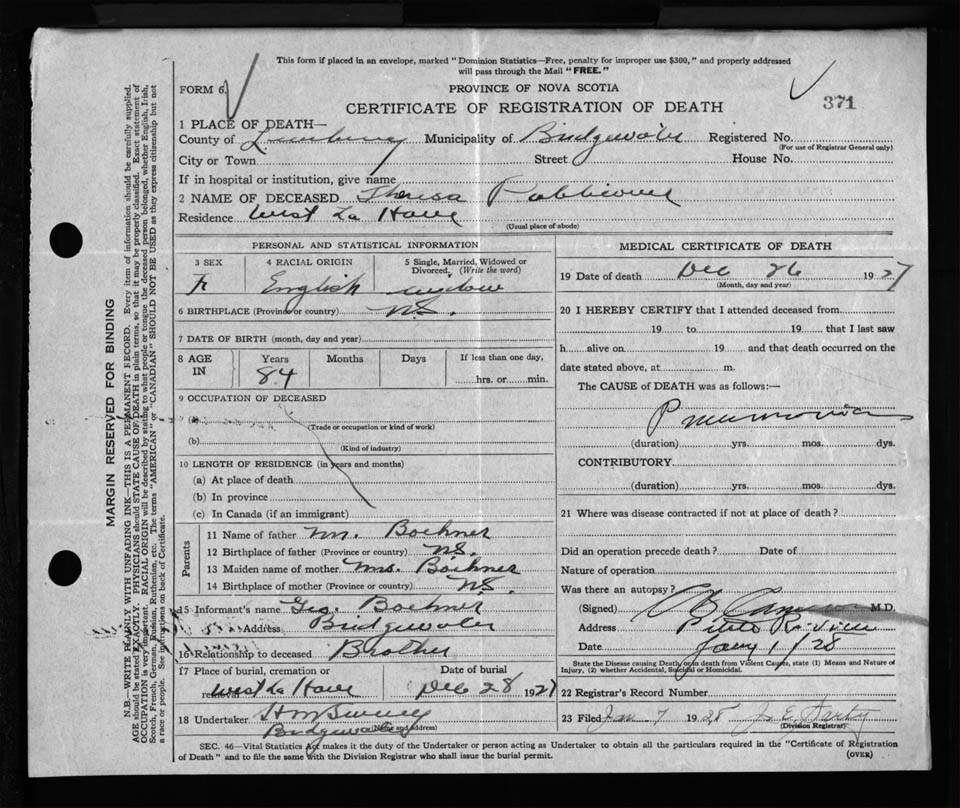 This form if placed in an envelope, marked "Dominion Statistics—Free, penalty for improper use $300," and properly addressed
will pass through the Mail "FREE."
FORM 6.
PROVINCE OF NOVA SCOTIA
CERTIFICATE OF REGISTRATION OF DEATH
371
1 PLACE OF DEATH—
County of Lunenburg Municipality of Bridgewater Registered No.
(For use of Registrar General only)
City or Town Street House No.
If in hospital or institution, give name
2 NAME OF DECEASED Theresa
Residence West La Have
(Usual place of abode)
PERSONAL AND STATISTICAL INFORMATION
3 SEX 4 RACIAL ORIGIN 5 Single, Married, Widowed or Divorced, (Write the word)
F English widow
6 BIRTHPLACE (Province or country) N.S.
7 DATE OF BIRTH (month, day and year)
8 AGE IN Years Months Days If less than one day,
84 hrs. or min.
9 OCCUPATION OF DECEASED
(a)
(Trade or occupation or kind of work)
(b)
(Kind of industry)
10 LENGTH OF RESIDENCE (in years and months)
(a) At place of death
(b) In province
(c) In Canada (if an immigrant)
Parents
11 Name of father Boehner
12 Birthplace of father (Province or country) N.S.
13 Maiden name of mother Mrs. Boehner
14 Birthplace of mother (Province or country) N.S.
15 Informant's name Geo. Boehner
Address Bridgewater
16 Relationship to deceased Brother
17 Place of burial, cremation or removal Date of burial
West La Have Dec 28 1927
18 Undertaker
Bridgewater
(Name and address)
MEDICAL CERTIFICATE OF DEATH
19 Date of death Dec 26 1927
(Month, day and year)
20 I HEREBY CERTIFY that I attended deceased from
19 to 19 that I last saw
h alive on 19 and that death occurred on the
date stated above, at m.
The CAUSE of DEATH was as follows:—
Pneumonia
(duration) yrs. mos. dys.
CONTRIBUTORY
(duration) yrs. mos. dys.
21 Where was disease contracted if not at place of death?
Did an operation precede death? Date of
Nature of operation
Was there an autopsy?
(Signed) M.D.
Address Petite Riviere
Date Jany 1/28
State the Disease causing Death, or in death from Violent Causes, state (1) Means and Nature of
Injury, (2) whether Accidental, Suicidal or Homicidal.
22 Registrar's Record Number
23 Filed Jan 7 1928
(Division Registrar)
SEC. 46—Vital Statistics Act makes it the duty of the Undertaker or person acting as Undertaker to obtain all the particulars required in the "Certificate of Registration
of Death" and to file the same with the Division Registrar who shall issue the burial permit.
(OVER)
MARGIN RESERVED FOR BINDING
N.B.—WRITE PLAINLY WITH UNFADING INK—THIS IS A PERMANENT RECORD. Every item of information should be carefully supplied.
AGE should be stated EXACTLY. PHYSICIANS should STATE CAUSE OF DEATH in plain terms, so that it may be properly classified. Exact statement of
OCCUPATION is very important. RACIAL ORIGIN will be described by stating to what people or tongue the deceased person belonged, whether English, Irish,
Scotch, French, German, Russian, Ruthenian, etc. The terms "AMERICAN" or "CANADIAN" SHOULD NOT BE USED as they express citizenship but not
a race or people. See instructions on back of Certificate.